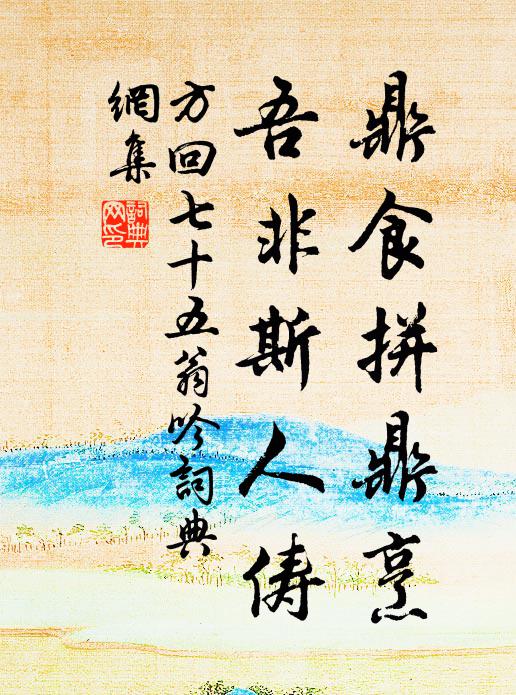 鼎食拼鼎烹
吾非斯人俦
方回七十五翁吟詞典
網集
詞典
网印